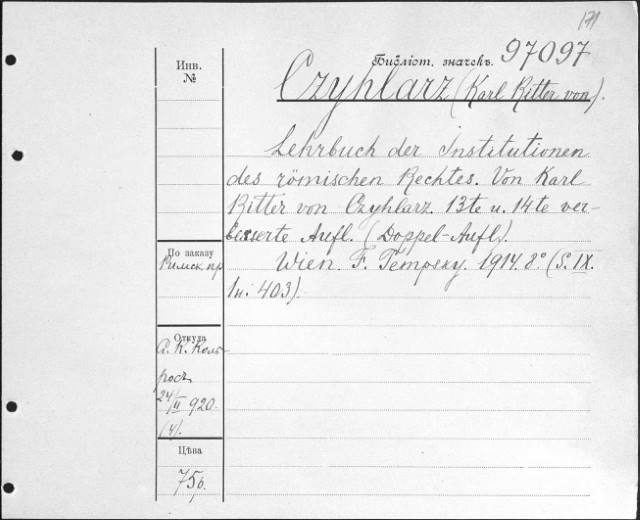 171
Библіот. значекъ. 97097
Инв.
№
Czyhlarz (Karl Ritter von).
Lehrbuch der Institutionen
des römischen Rechtes. Von Karl
Ritter von Czyhlarz. 13te u. 14te ver-
besserte Aufl. (Doppel-Aufl.).
Wien. F. Tempsky. 1914. 8° (S. IX.
1 u. 403).
По заказу
Римск. пр.
Откуда
24/II 920.
(4).
Цѣна
75 р.